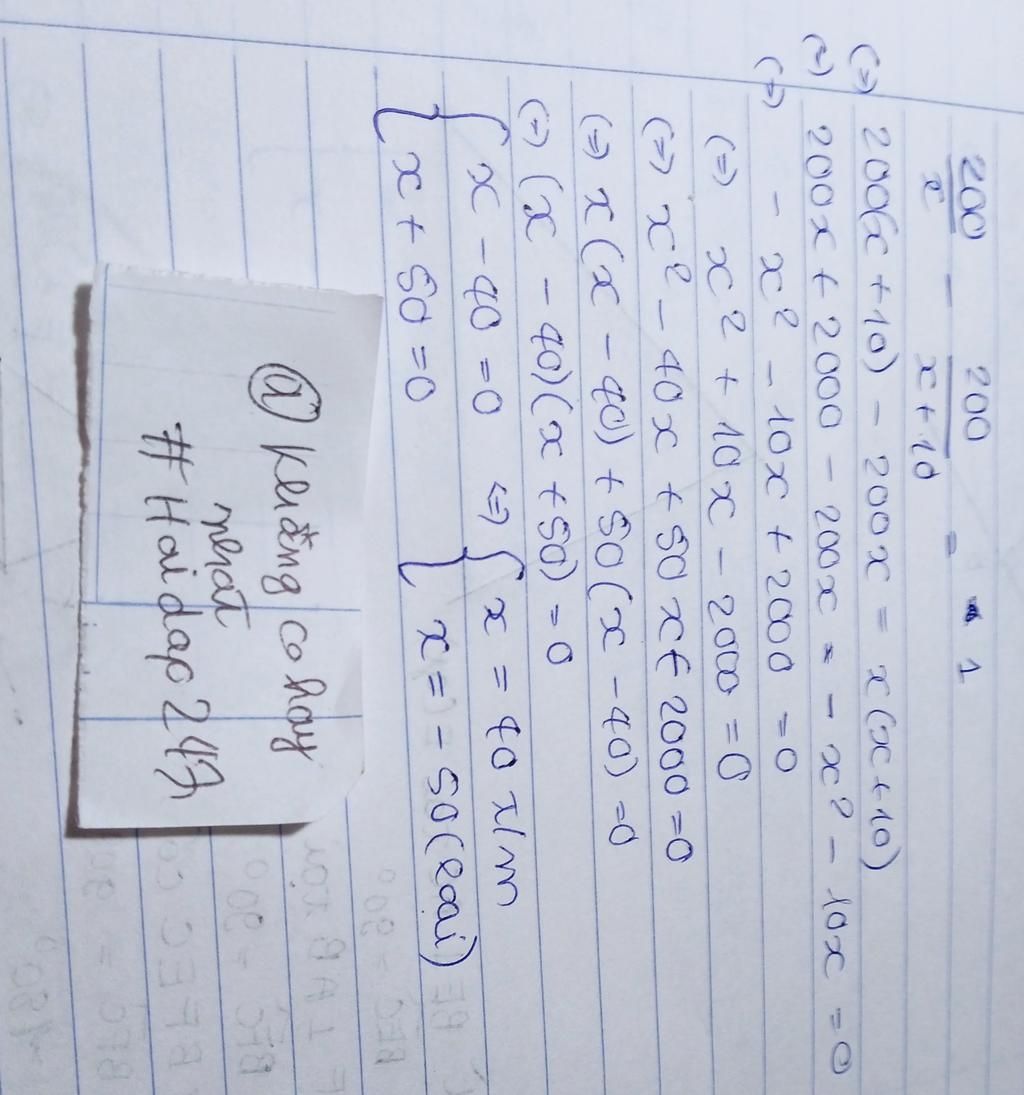 200/x - 200/x+10 = 1
(=) 200(x+10) - 200x = x(x+10)
(=) 200x + 2000 - 200x = - x² - 10x = 0
(=) - x² - 10x + 2000 = 0
(=) x² + 10x - 2000 = 0
(=) x² - 40x + 50x - 2000 = 0
(=) x(x - 40) + 50(x - 40) = 0
(=) (x - 40)(x + 50) = 0
{ x - 40 = 0 <=> { x = 40 T/m
{ x + 50 = 0 { x = - 50 (loại)
@ Khẳng co hay
nhat
# Hoidap247